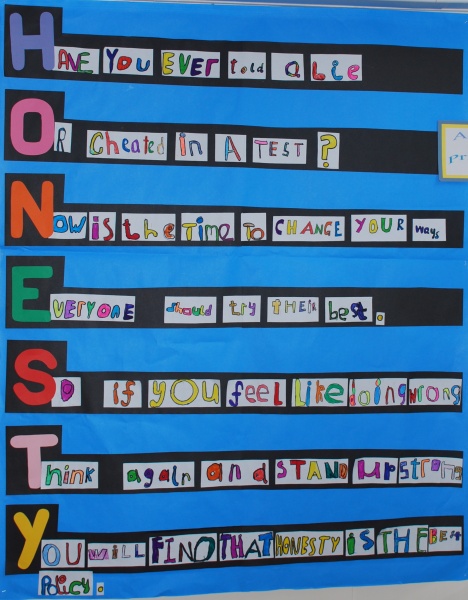 HAVE YOU EVER told a Lie
OR Cheated in A TEST ?
NOW is the Time To CHANGE YOUR ways
EVERYONE should try THEIR best.
SO if you feel like doing wrong
Think again and STAND UP strong
YOU WILL FIND THAT HONESTY iS THE BEST
Policy.